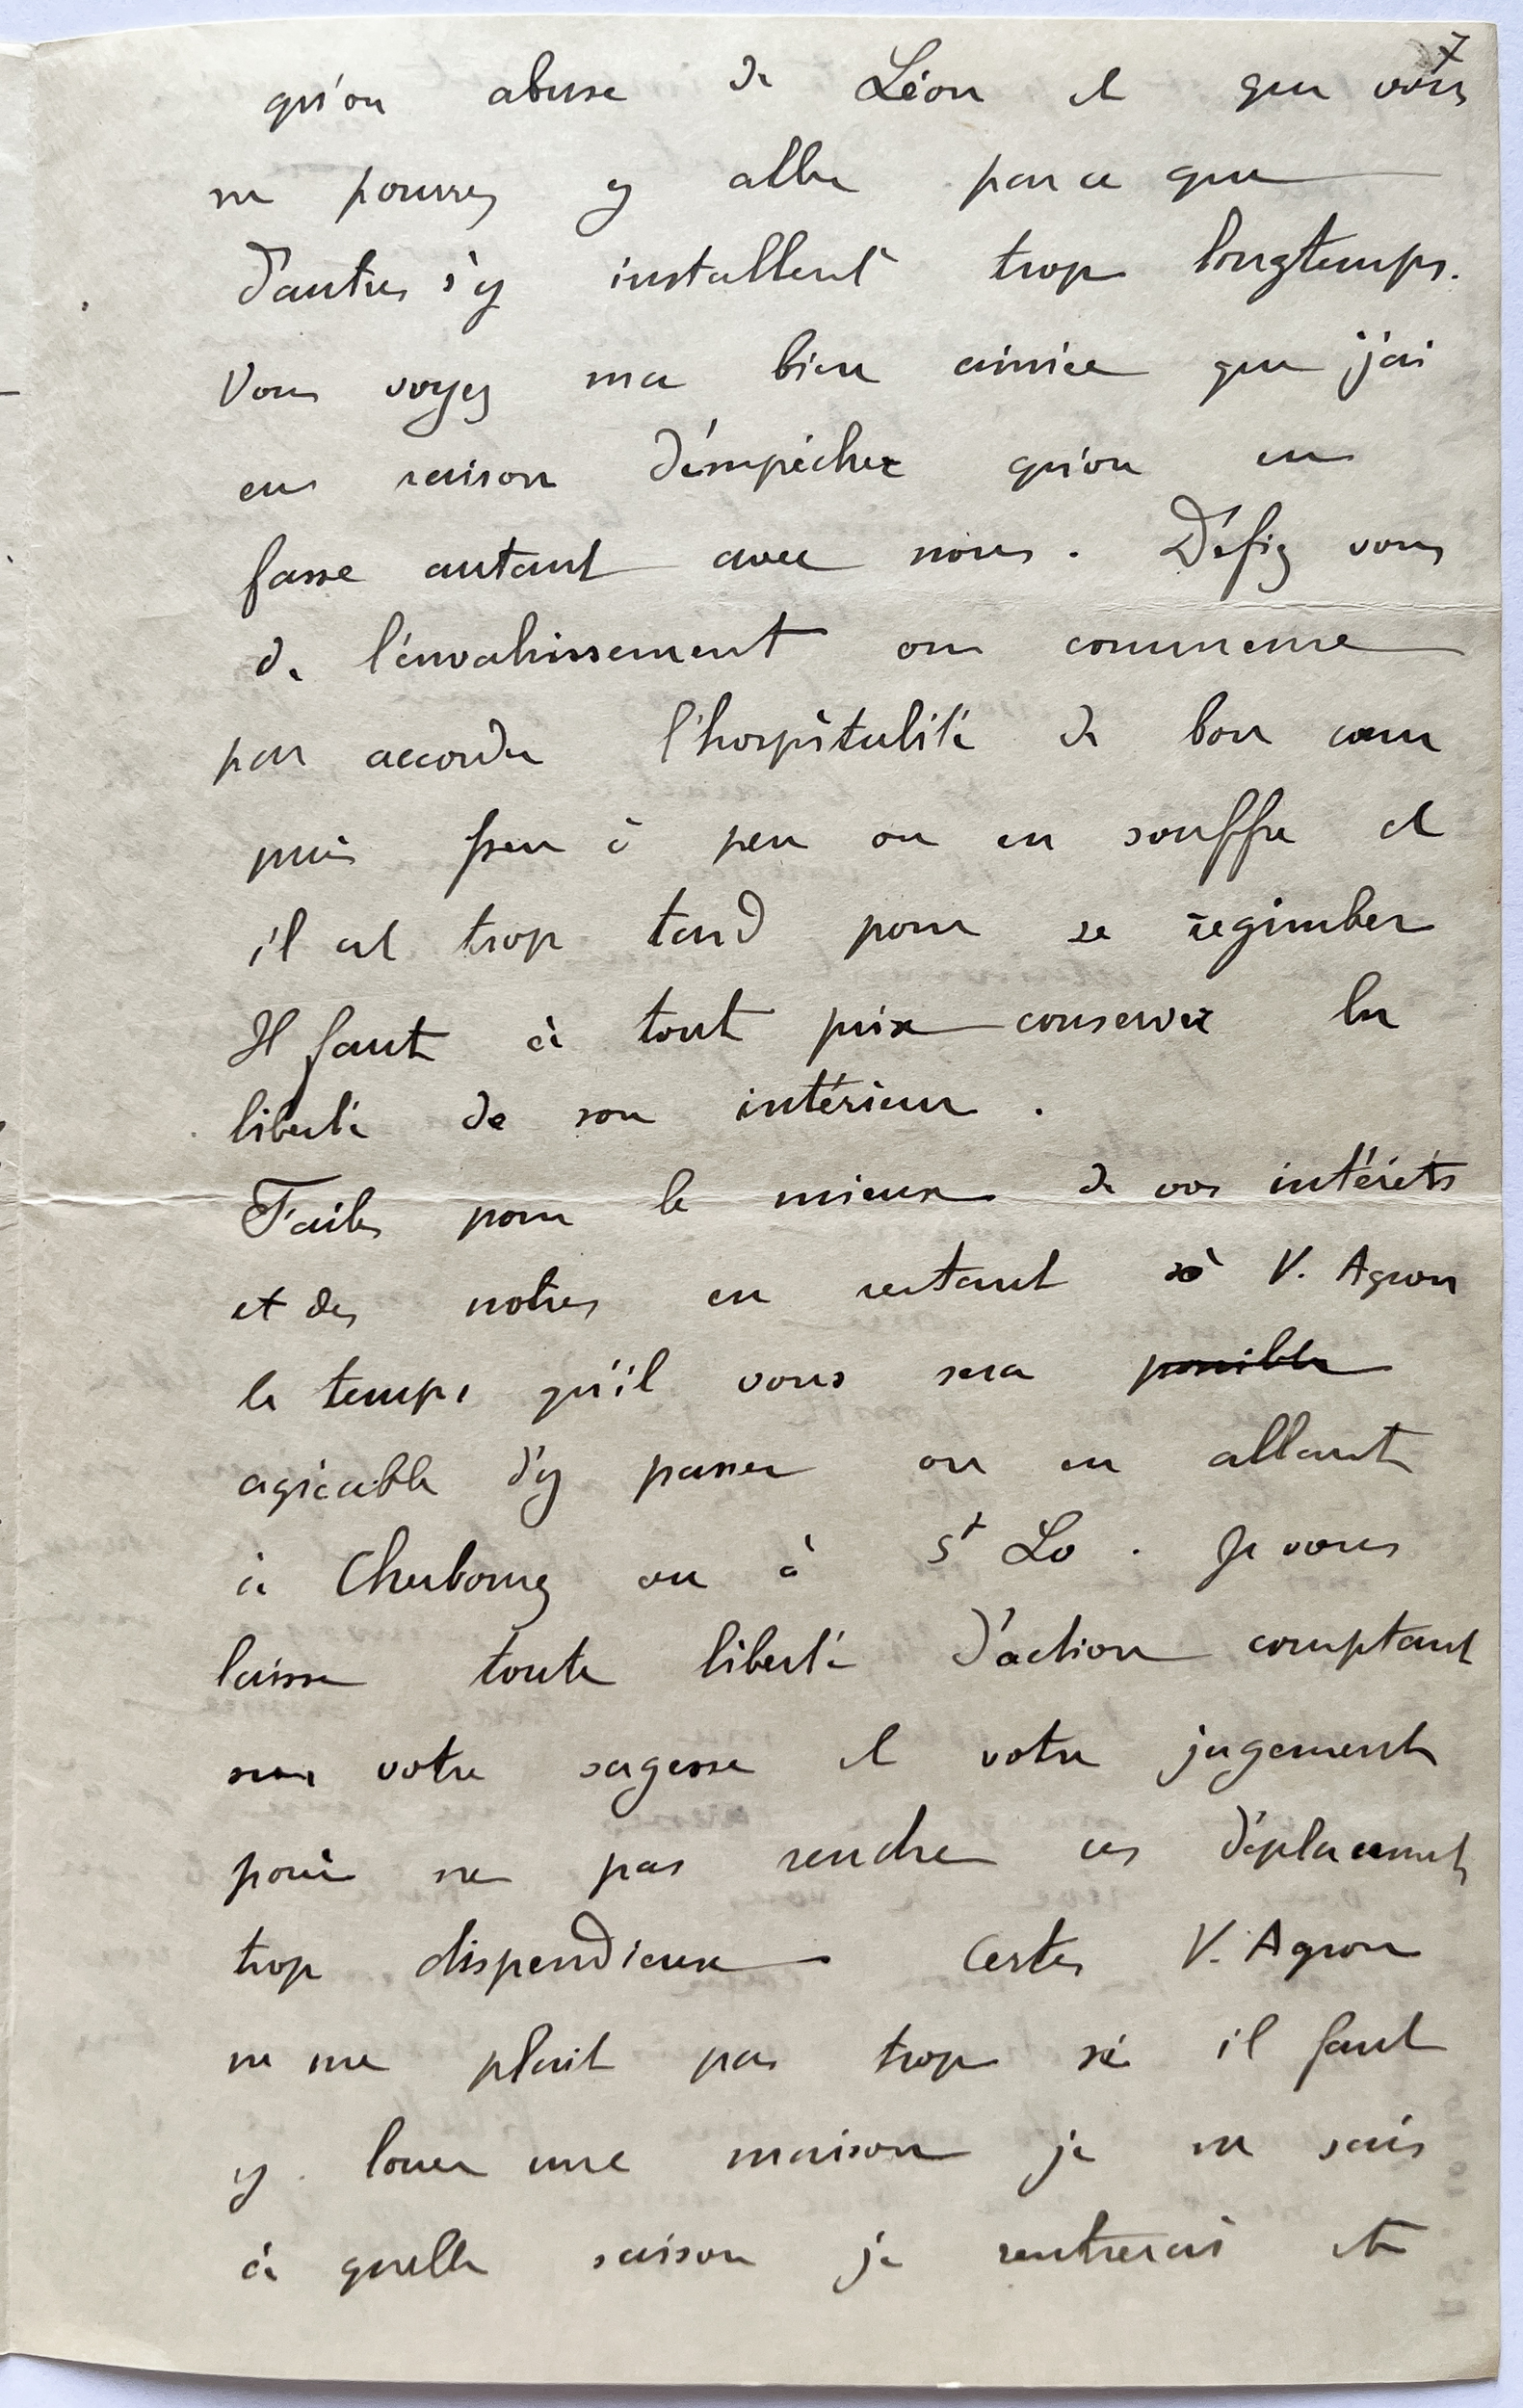 7
qu'on abuse de Léon et que vous
ne pouvez y aller parce que
d'autres s'y installent trop longtemps.
Vous voyez ma bien aimée que j'ai
eu raison d'empêcher qu'on en
fasse autant avec nous. Défiez vous
de l'envahissement on commence
par accorder l'hospitalité de bon cœur
puis peu à peu on en souffre et
il est trop tard pour se regimber
Il faut à tout prix conserver la
liberté de son intérieur.
Faites pour le mieux de vos intérêts
et des notres en restant à V. Agron
le temps qu'il vous sera possible
agréable d'y passer ou en allant
à Cherbourg ou à St Lo. Je vous
laisse toute liberté d'action comptant
sur votre sagesse et votre jugement
pour ne pas rendre ces déplacements
trop dispendieux. Certes V. Agron
ne me plait pas trop si il faut
y louer une maison je ne sais
à quelle saison je rentrerais et